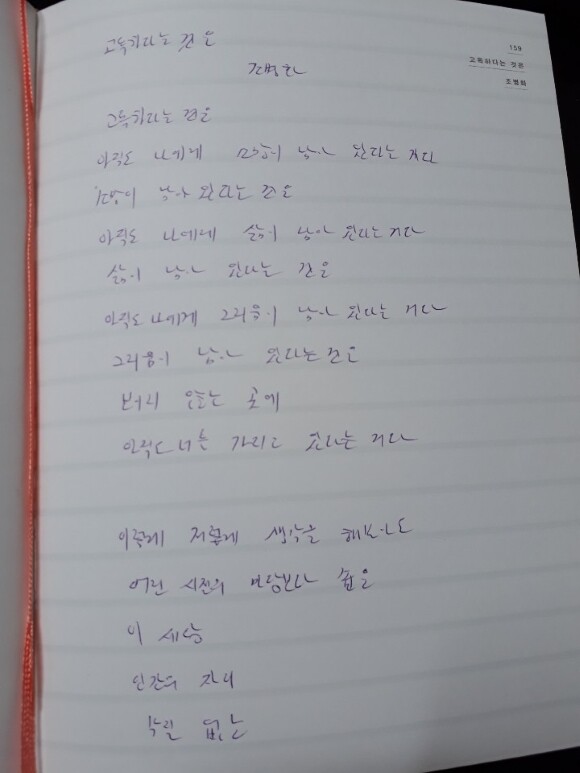 고독하다는 것은
조병화
159
고독하다는 것은
조병화
고독하다는 것은
아직도 나에게 소망이 남아 있다는 거다
소망이 남아 있다는 것은
아직도 나에게 삶이 남아 있다는 거다
삶이 남아 있다는 것은
아직도 나에게 그리움이 남아 있다는 거다
그리움이 남아 있다는 것은
보이지 않는 곳에
아직도 너를 가지고 있다는 거다
이렇게 저렇게 생각을 해보아도
어린 시절의 마당보다 좁은
이 세상
인간의 자리
부질 없는